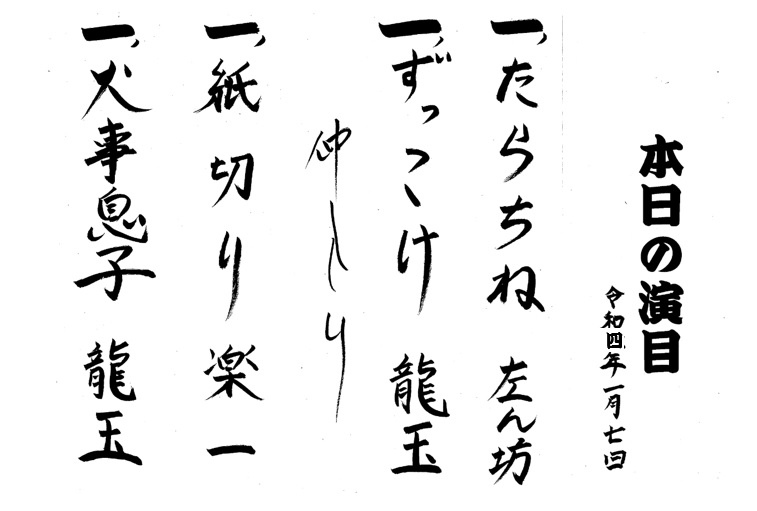 本日の演目
令和四年一月七日
一、たらちね 左ん坊
一、ずっこけ 龍玉
仲入り
一、紙切り 楽一
一、火事息子 龍玉